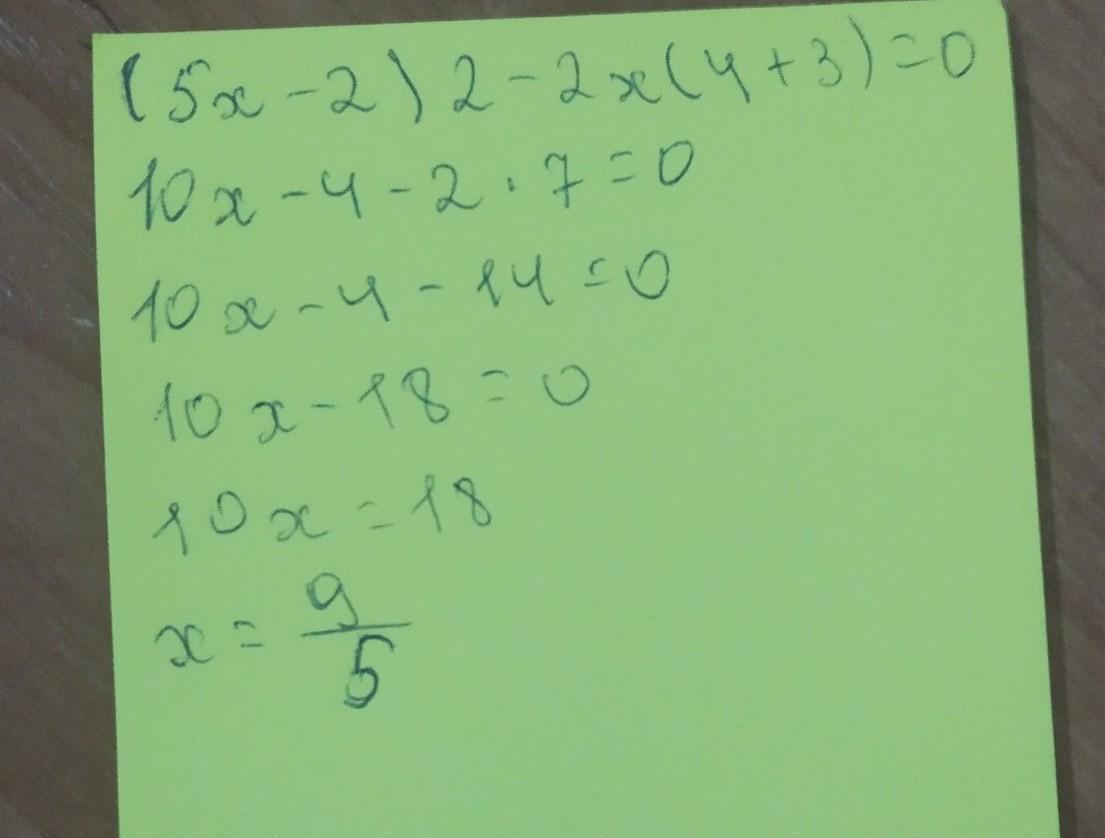 (5x-2)2-2x(4+3)=0
10x-4-2·7=0
10x-4-14=0
10x-18=0
10x=18
x=9/5